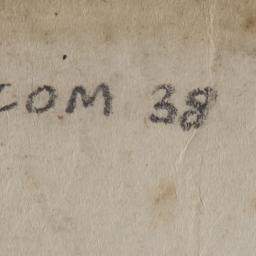 COM 38